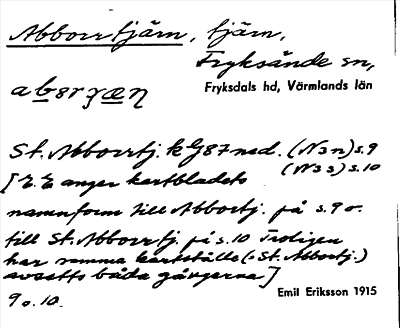 Abborrtjärn, tjärn,
Fryksände sn,
Fryksdals hd, Värmlands län
St. Abborrtj. k G87 ned. (N3n) s.9
(N3s) s.10
[E. E anger kartbladets
namnform till Abbortj. på s.9 o.
till St. Abborrtj. på s.10 Troligen
har samma kartställe (: St. Abbortj.)
avsetts båda gångerna]
9 o. 10.
Emil Eriksson 1915